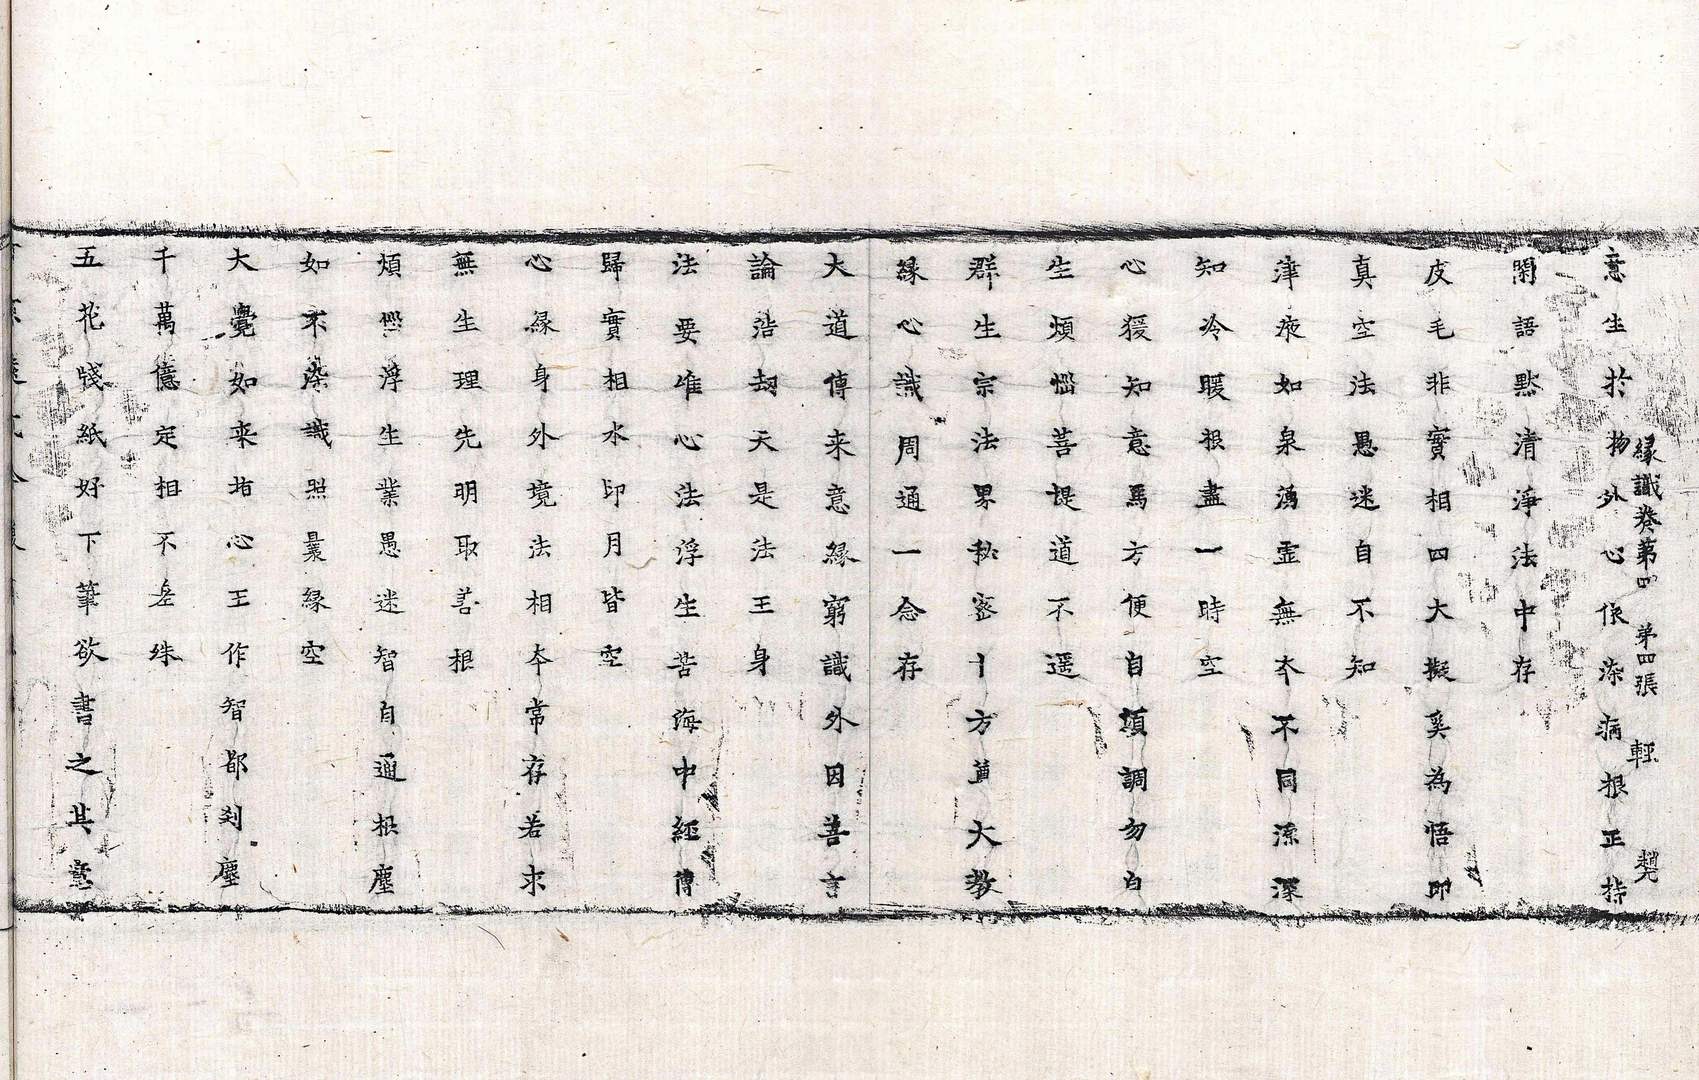 意生於物外心依染病根正持
緣識卷第四　第四張　輕
閑語默清淨法中存
皮毛非實相四大擬奚為悟即
真空法愚迷自不知
津液如泉湧靈無本不同源深
知冷暖根盡一時空
心猨知意馬方便自須調勿白
生煩惱菩提道不遥
群生宗法界秘密十方異大教
緣心識周通一念存
大道傳来意緣窮識外因菩言
論浩劫天是法王身
法要唯心法浮生苦海中經傳
歸實相水印月皆空
心緣身外境法相本常存若求
無生理先明取善根
煩惱浮生業愚迷智自通根塵
如不染識照曩緣空
大覺如来指心王作智都刹塵
千萬億定相不差殊
五花牋紙好下筆欲書之其意